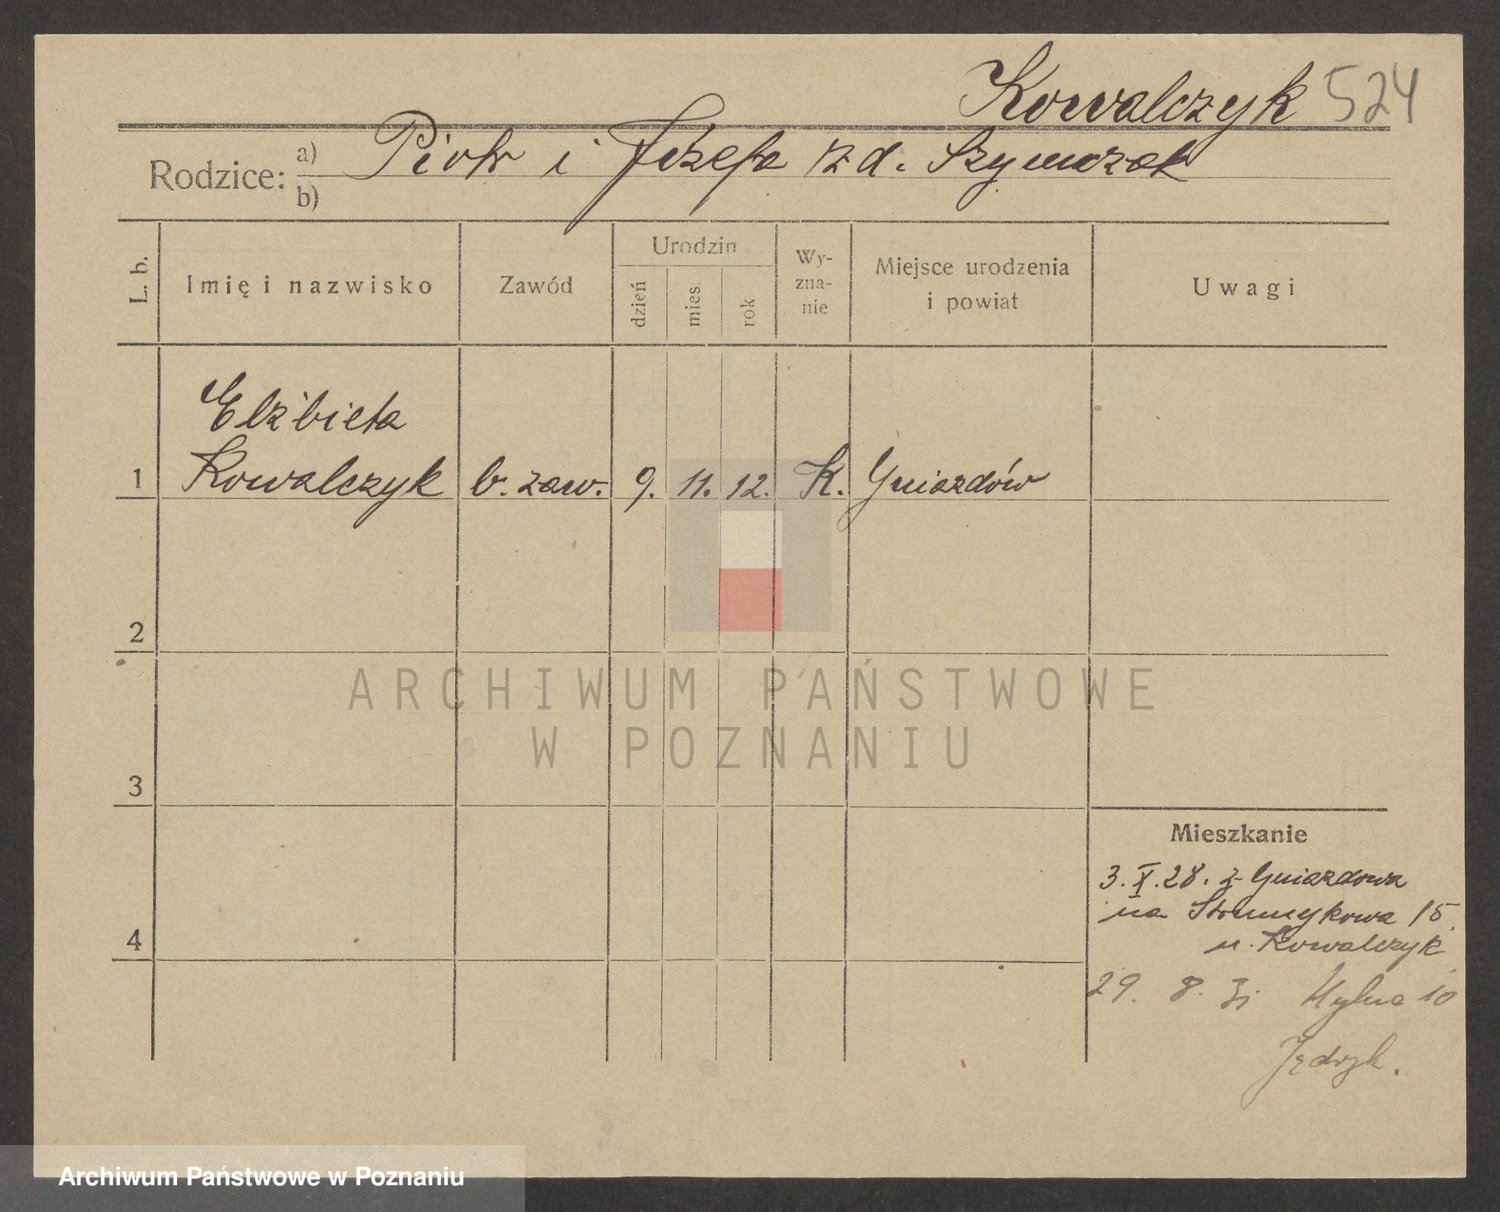 Kowalczyk 524
Rodzice: a) Piotr i Józefa z d. Szymczak
b)
L. b.
Imię i nazwisko
Zawód
Urodzin
dzień
mies.
rok
Wy-
zna-
nie
Miejsce urodzenia
i powiat
Uwagi
Elżbieta
1 Kowalczyk b. zaw. 9. 11. 12. K. Gniazdów
2
ARCHIWUM PAŃSTWOWE
W POZNANIU
3
Mieszkanie
3. X. 28. z Gniazdowa
na Strumykowa 15
u. Kowalczyk
4
29. 8. 31 Mylna 10
Archiwum Państwowe w Poznaniu